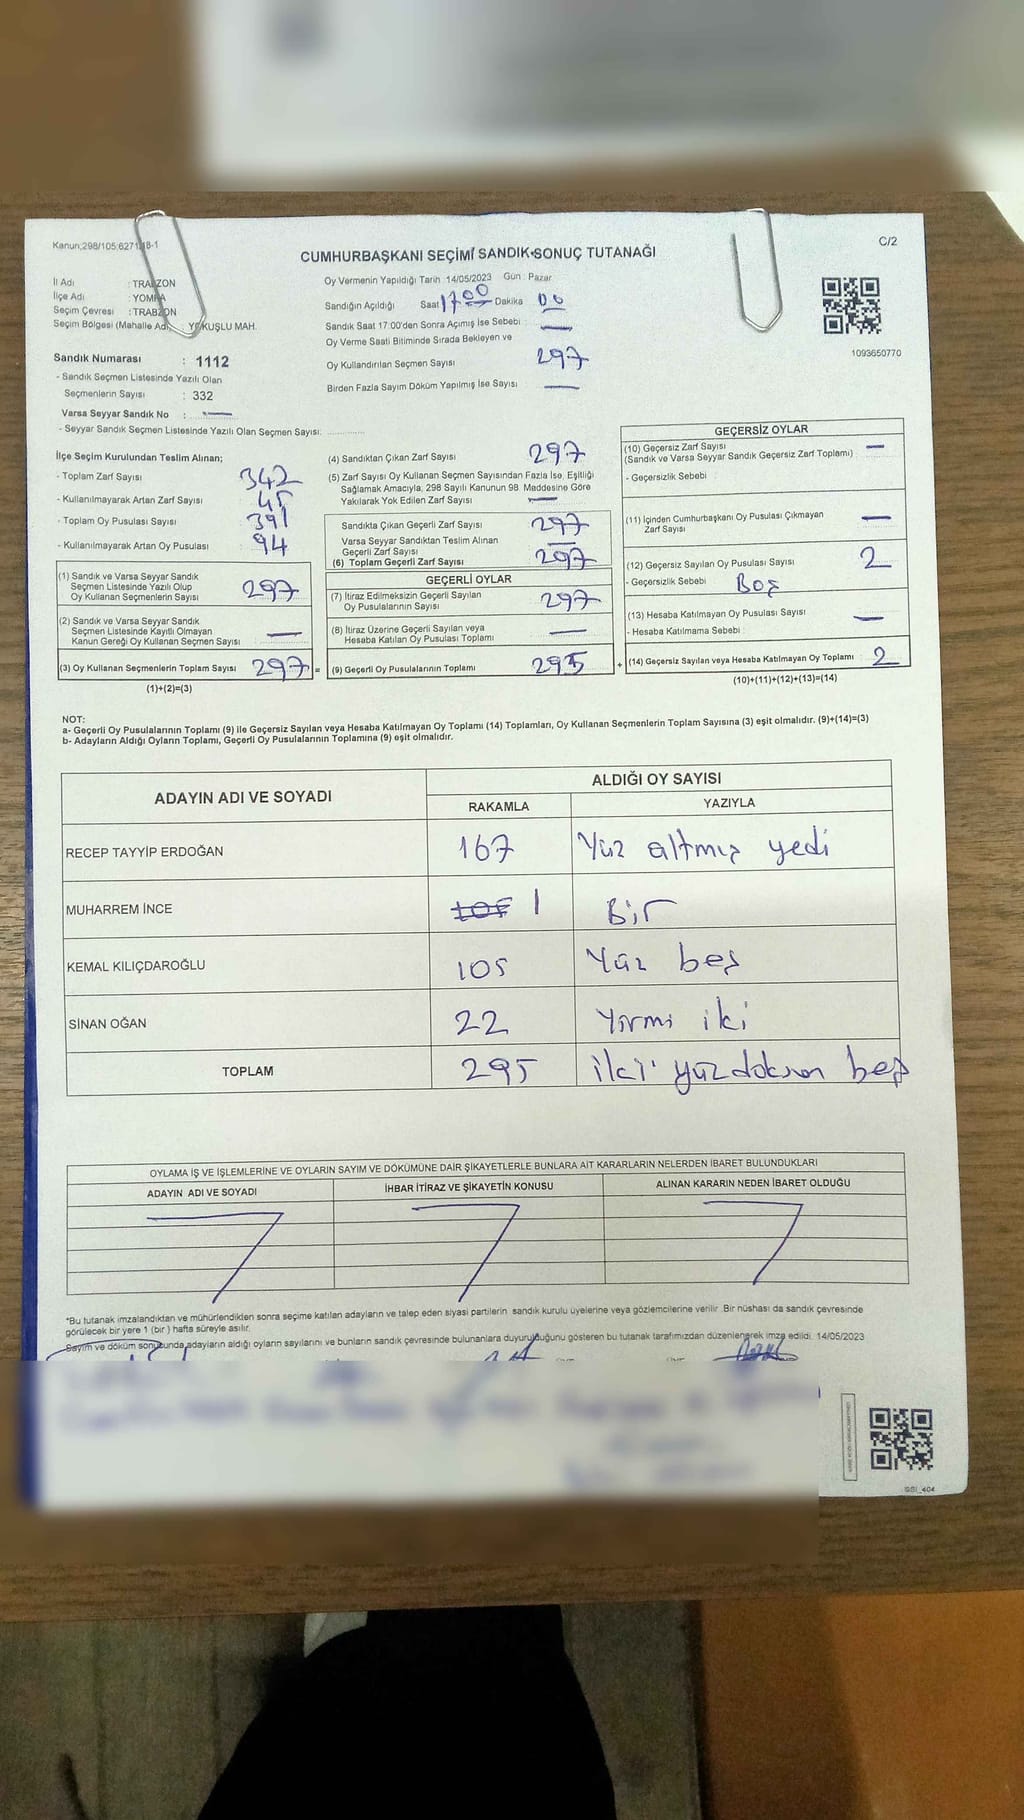 Kanun;298/105;6271/18-1
C/2
CUMHURBAŞKANI SEÇİMİ SANDIK SONUÇ TUTANAĞI
İl Adı : TRABZON
İlçe Adı : YOMRA
Seçim Çevresi : TRABZON
Seçim Bölgesi (Mahalle Adı) : YOKUŞLU MAH.
Sandık Numarası : 1112
- Sandık Seçmen Listesinde Yazılı Olan
Seçmenlerin Sayısı : 332
Varsa Seyyar Sandık No : —
- Seyyar Sandık Seçmen Listesinde Yazılı Olan Seçmen Sayısı: ............
Oy Vermenin Yapıldığı Tarih :14/05/2023 Gün : Pazar
Sandığın Açıldığı Saat 17.00 Dakika 00
Sandık Saat 17:00'den Sonra Açımış İse Sebebi : —
Oy Verme Saati Bitiminde Sırada Bekleyen ve
Oy Kullandırılan Seçmen Sayısı 297
Birden Fazla Sayım Döküm Yapılmış İse Sayısı —
1093650770
İlçe Seçim Kurulundan Teslim Alınan;
- Toplam Zarf Sayısı 342
- Kullanılmayarak Artan Zarf Sayısı 45
- Toplam Oy Pusulası Sayısı 391
- Kullanılmayarak Artan Oy Pusulası 94
(1) Sandık ve Varsa Seyyar Sandık
Seçmen Listesinde Yazılı Olup
Oy Kullanan Seçmenlerin Sayısı 297
(2) Sandık ve Varsa Seyyar Sandık
Seçmen Listesinde Kayıtlı Olmayan
Kanun Gereği Oy Kullanan Seçmen Sayısı —
(3) Oy Kullanan Seçmenlerin Toplam Sayısı 297 =
(1)+(2)=(3)
(4) Sandıktan Çıkan Zarf Sayısı 297
(5) Zarf Sayısı Oy Kullanan Seçmen Sayısından Fazla İse, Eşitliği
Sağlamak Amacıyla, 298 Sayılı Kanunun 98. Maddesine Göre
Yakılarak Yok Edilen Zarf Sayısı —
Sandıkta Çıkan Geçerli Zarf Sayısı 297
Varsa Seyyar Sandıktan Teslim Alınan
Geçerli Zarf Sayısı —
(6) Toplam Geçerli Zarf Sayısı 297
GEÇERLİ OYLAR
(7) İtiraz Edilmeksizin Geçerli Sayılan
Oy Pusulalarının Sayısı 297
(8) İtiraz Üzerine Geçerli Sayılan veya
Hesaba Katılan Oy Pusulası Toplamı —
(9) Geçerli Oy Pusulalarının Toplamı 295 +
GEÇERSİZ OYLAR
(10) Geçersiz Zarf Sayısı —
(Sandık ve Varsa Seyyar Sandık Geçersiz Zarf Toplamı)
- Geçersizlik Sebebi
(11) İçinden Cumhurbaşkanı Oy Pusulası Çıkmayan
Zarf Sayısı —
(12) Geçersiz Sayılan Oy Pusulası Sayısı 2
- Geçersizlik Sebebi Boş
(13) Hesaba Katılmayan Oy Pusulası Sayısı —
- Hesaba Katılmama Sebebi
(14) Geçersiz Sayılan veya Hesaba Katılmayan Oy Toplamı 2
(10)+(11)+(12)+(13)=(14)
NOT:
a- Geçerli Oy Pusulalarının Toplamı (9) ile Geçersiz Sayılan veya Hesaba Katılmayan Oy Toplamı (14) Toplamları, Oy Kullanan Seçmenlerin Toplam Sayısına (3) eşit olmalıdır. (9)+(14)=(3)
b- Adayların Aldığı Oyların Toplamı, Geçerli Oy Pusulalarının Toplamına (9) eşit olmalıdır.
ADAYIN ADI VE SOYADI
ALDIĞI OY SAYISI
RAKAMLA YAZIYLA
RECEP TAYYİP ERDOĞAN 167 Yüz altmış yedi
MUHARREM İNCE 105 1 Bir
KEMAL KILIÇDAROĞLU 105 Yüz beş
SİNAN OĞAN 22 Yirmi iki
TOPLAM 295 iki yüzdoksan beş
OYLAMA İŞ VE İŞLEMLERİNE VE OYLARIN SAYIM VE DÖKÜMÜNE DAİR ŞİKAYETLERLE BUNLARA AİT KARARLARIN NELERDEN İBARET BULUNDUKLARI
ADAYIN ADI VE SOYADI İHBAR İTİRAZ VE ŞİKAYETİN KONUSU ALINAN KARARIN NEDEN İBARET OLDUĞU
*Bu tutanak imzalandıktan ve mühürlendikten sonra seçime katılan adayların ve talep eden siyasi partilerin sandık kurulu üyelerine veya gözlemcilerine verilir. Bir nüshası da sandık çevresinde
görülecek bir yere 1 (bir) hafta süreyle asılır.
Sayım ve döküm sonucunda,adayların aldığı oyların sayılarını ve bunların sandık çevresinde bulunanlara duyurulduğunu gösteren bu tutanak tarafımızdan düzenlenerek imza edildi. 14/05/2023